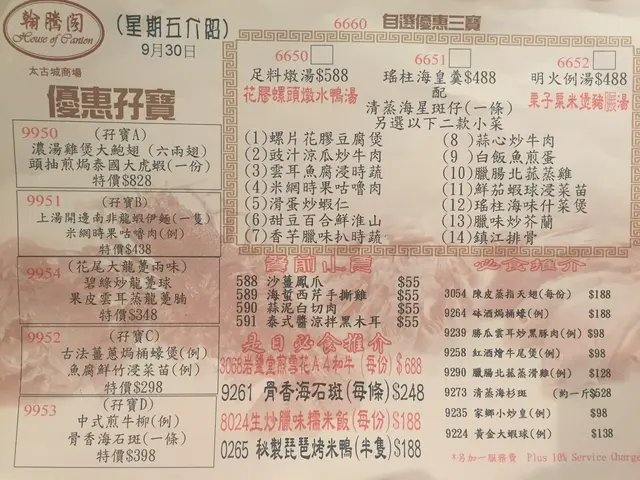 翰騰閣
House of Canton
太古城商場
(星期五介紹)
9月30日
優惠孖寶
9950 (孖寶A)
濃湯雞煲大鮑翅 (六兩翅)
頭抽煎焗泰國大虎蝦(一份)
特價$828
9951 (孖寶B)
上湯開邊南非龍蝦伊麵(一隻)
米網時果咕嚕肉(例)
特價$438
9954 (花尾大龍躉兩味)
碧綠炒龍躉球
果皮雲耳蒸龍躉腩
特價$348
9952 (孖寶C)
古法薑蔥焗桶蠔煲(例)
魚腐鮮竹浸菜苗(例)
特價$298
9953 (孖寶D)
中式煎牛柳(例)
骨香海石斑(一條)
特價$398
6660 自選優惠三寶
6650
足料燉湯$588
花膠螺頭燉水鴨湯
6651
瑤柱海皇羹$488
6652
明火例湯$488
栗子粟米煲豬湯
配
清蒸海星斑仔(一條)
另選以下二款小菜
(1)螺片花膠豆腐煲
(2)豉汁涼瓜炒牛肉
(3)雲耳魚腐浸時蔬
(4)米網時果咕嚕肉
(5)滑蛋炒蝦仁
(6)甜豆百合鮮淮山
(7)香芋臘味扒時蔬
(8)蒜心炒牛肉
(9)白飯魚煎蛋
(10)臘腸北菰蒸雞
(11)鮮茄蝦球浸菜苗
(12)瑤柱海味什菜煲
(13)臘味炒芥蘭
(14)鎮江排骨
餐前小食
588 沙薑鳳爪 $55
589 海蜇西芹手撕雞 $55
590 蒜泥白切肉 $55
591 泰式醬涼拌黑木耳 $55
是日必食推介
3068岩鹽堂煎雪花A4和牛(每份)$688
9261 骨香海石斑(每條)$248
8024生炒臘味糯米飯(每份)$188
0265 秘製琵琶烤米鴨(半隻)$188
必食推介
3054 陳皮蒸指天翅(每份) $188
9264 砵酒焗桶蠔(例) $188
9239 勝瓜雲耳炒黑豚肉(例) $98
9258 紅酒燴牛尾煲(例) $98
9290 臘腸北菰蒸滑雞(例) $128
9273 清蒸海杉斑 (約一斤$528
9235 家鄉小炒皇(例) $98
9224 黃金大蝦球(例) $138
*另加一服務費 Plus 10% Service Charge